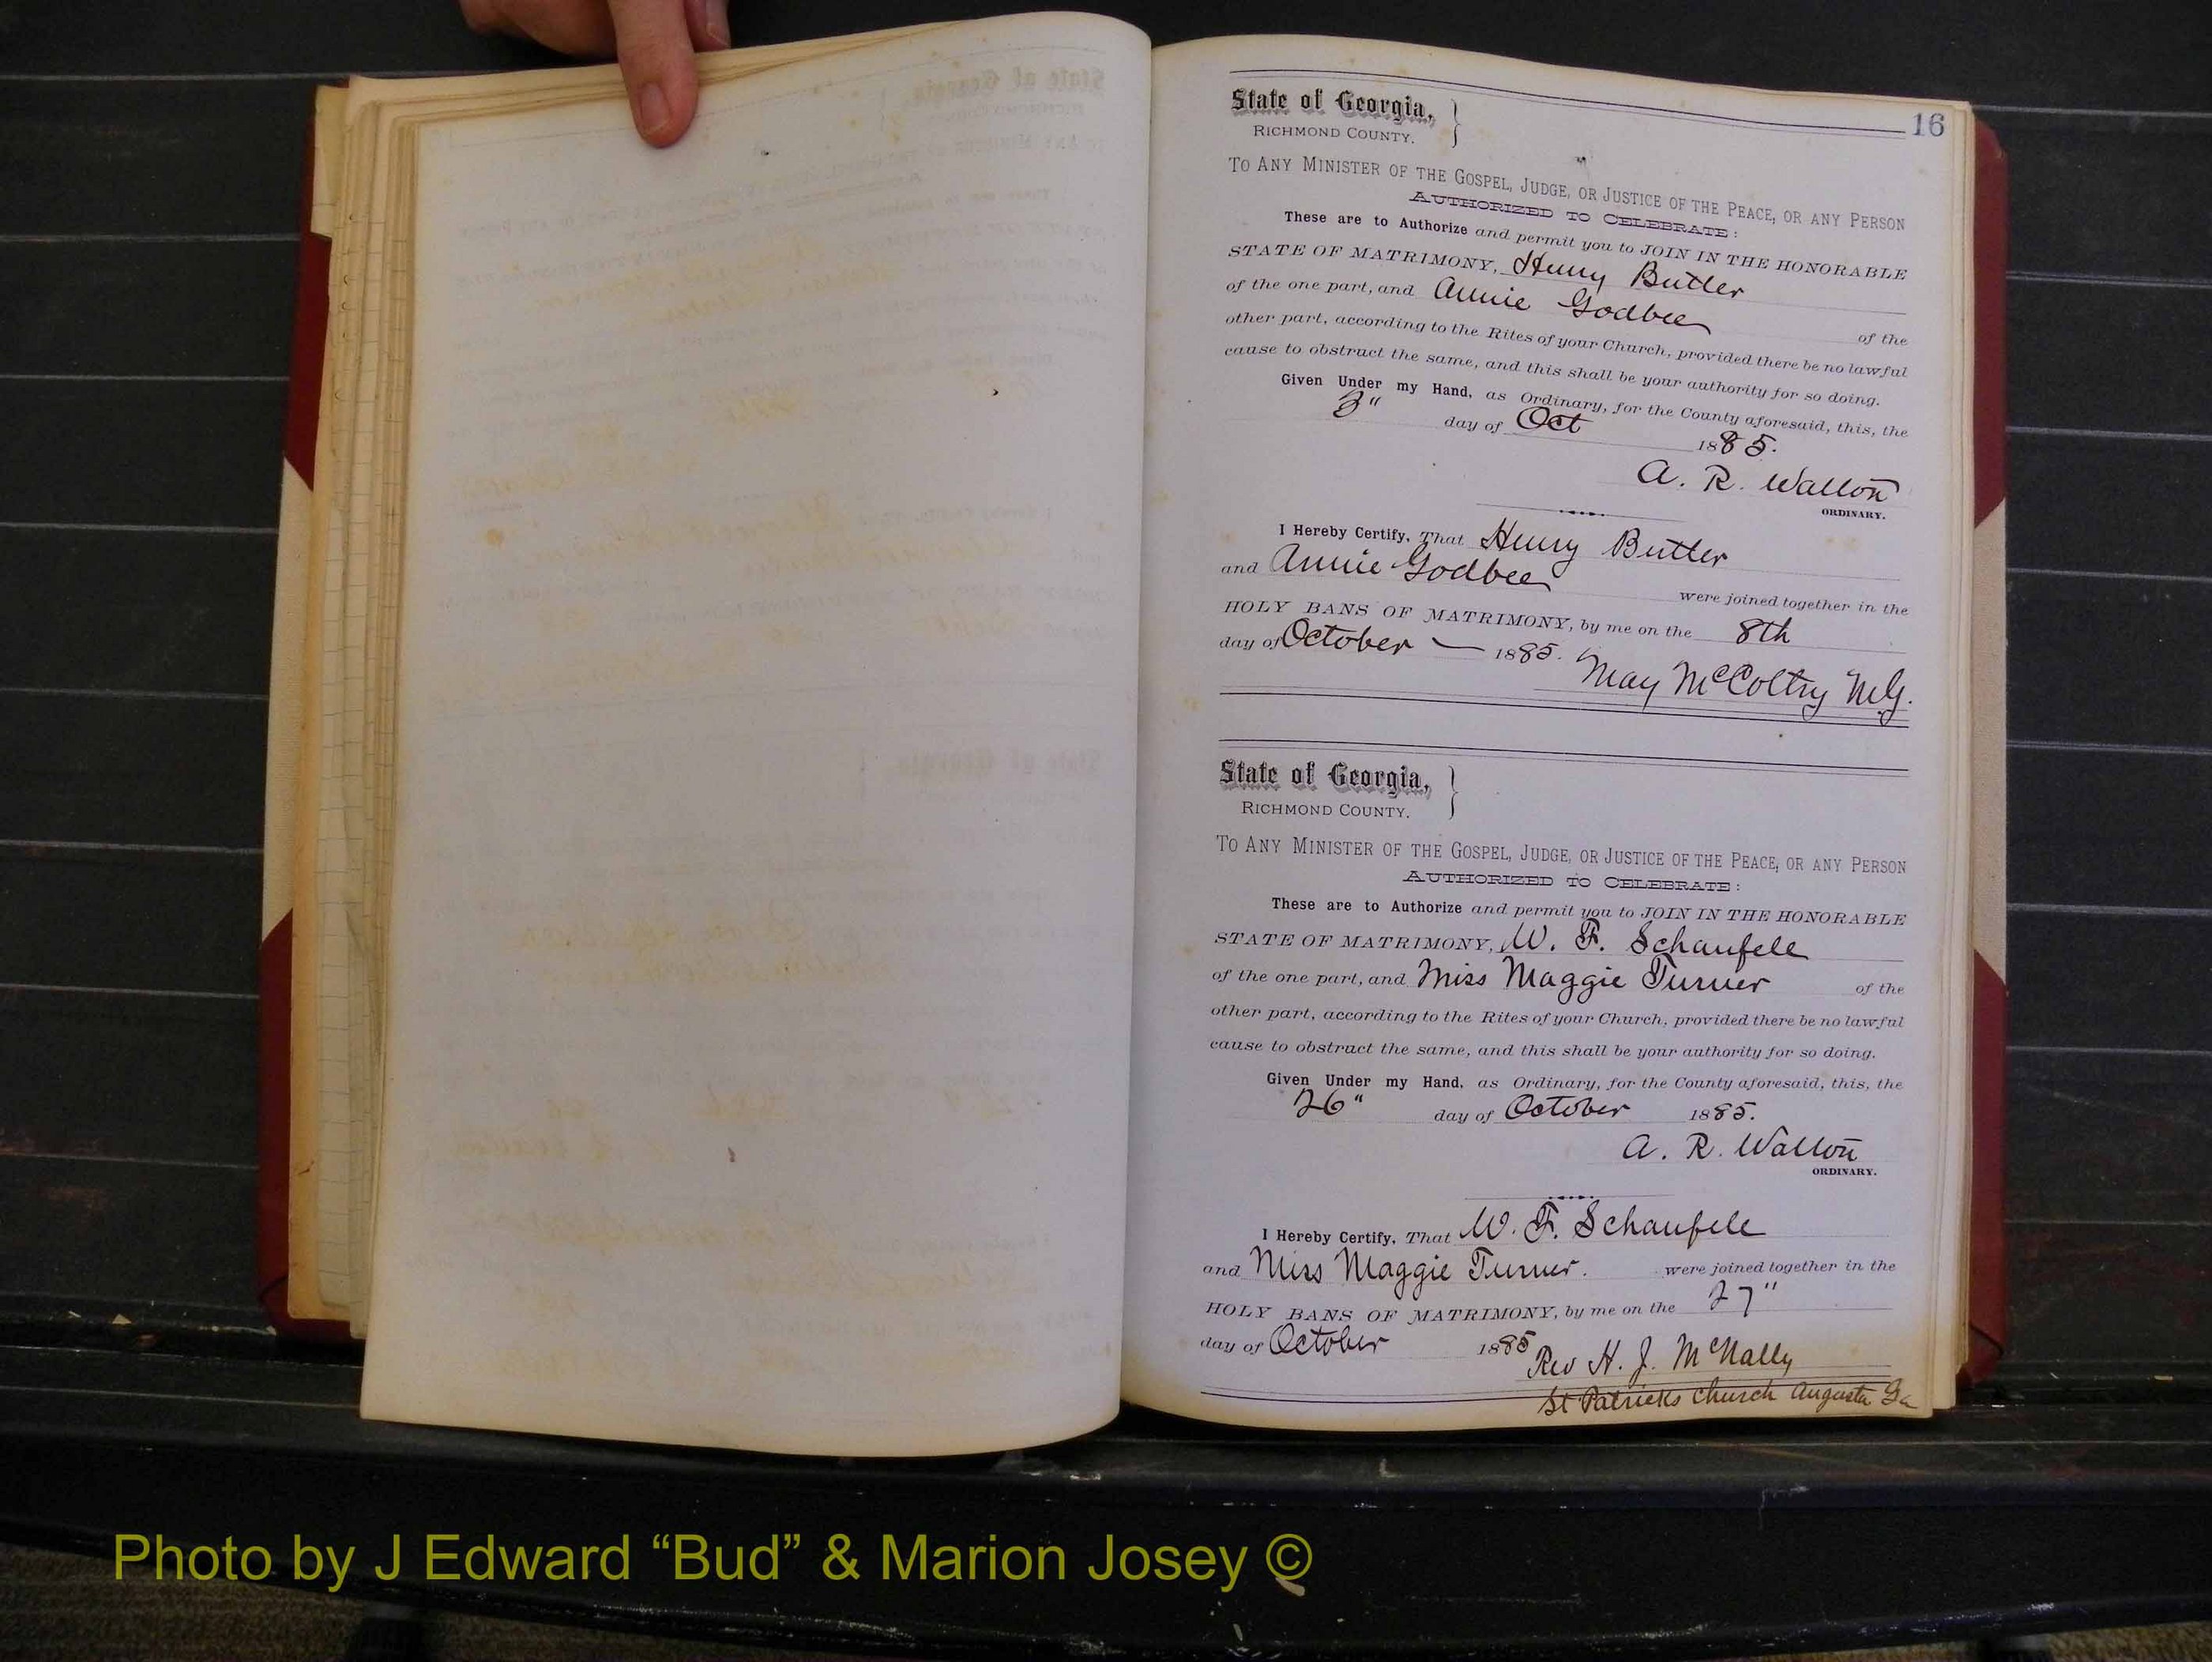 16
State of Georgia,
RICHMOND COUNTY.
TO ANY MINISTER OF THE GOSPEL, JUDGE, OR JUSTICE OF THE PEACE, OR ANY PERSON
AUTHORIZED TO CELEBRATE:
These are to Authorize and permit you to JOIN IN THE HONORABLE
STATE OF MATRIMONY, Henry Butler
of the one part, and Annie Godbee of the
other part, according to the Rites of your Church, provided there be no lawful
cause to obstruct the same, and this shall be your authority for so doing.
Given Under my Hand, as Ordinary, for the County aforesaid, this, the
3" day of Oct 1885.
A. R. Walton
ORDINARY.
I Hereby Certify, That Henry Butler
and Annie Godbee were joined together in the
HOLY BANS OF MATRIMONY, by me on the 8th
day of October — 1885.
May McColtry M.G.
State of Georgia,
RICHMOND COUNTY.
TO ANY MINISTER OF THE GOSPEL, JUDGE, OR JUSTICE OF THE PEACE, OR ANY PERSON
AUTHORIZED TO CELEBRATE:
These are to Authorize and permit you to JOIN IN THE HONORABLE
STATE OF MATRIMONY, W. F. Schaufele
of the one part, and Miss Maggie Turner of the
other part, according to the Rites of your Church, provided there be no lawful
cause to obstruct the same, and this shall be your authority for so doing.
Given Under my Hand, as Ordinary, for the County aforesaid, this, the
26" day of October 1885.
A. R. Walton
ORDINARY.
I Hereby Certify, That W. F. Schaufele
and Miss Maggie Turner. were joined together in the
HOLY BANS OF MATRIMONY, by me on the 27"
day of October 1885
Rev H. J. McNally
St Patricks Church Augusta Ga
Photo by J Edward “Bud” & Marion Josey ©